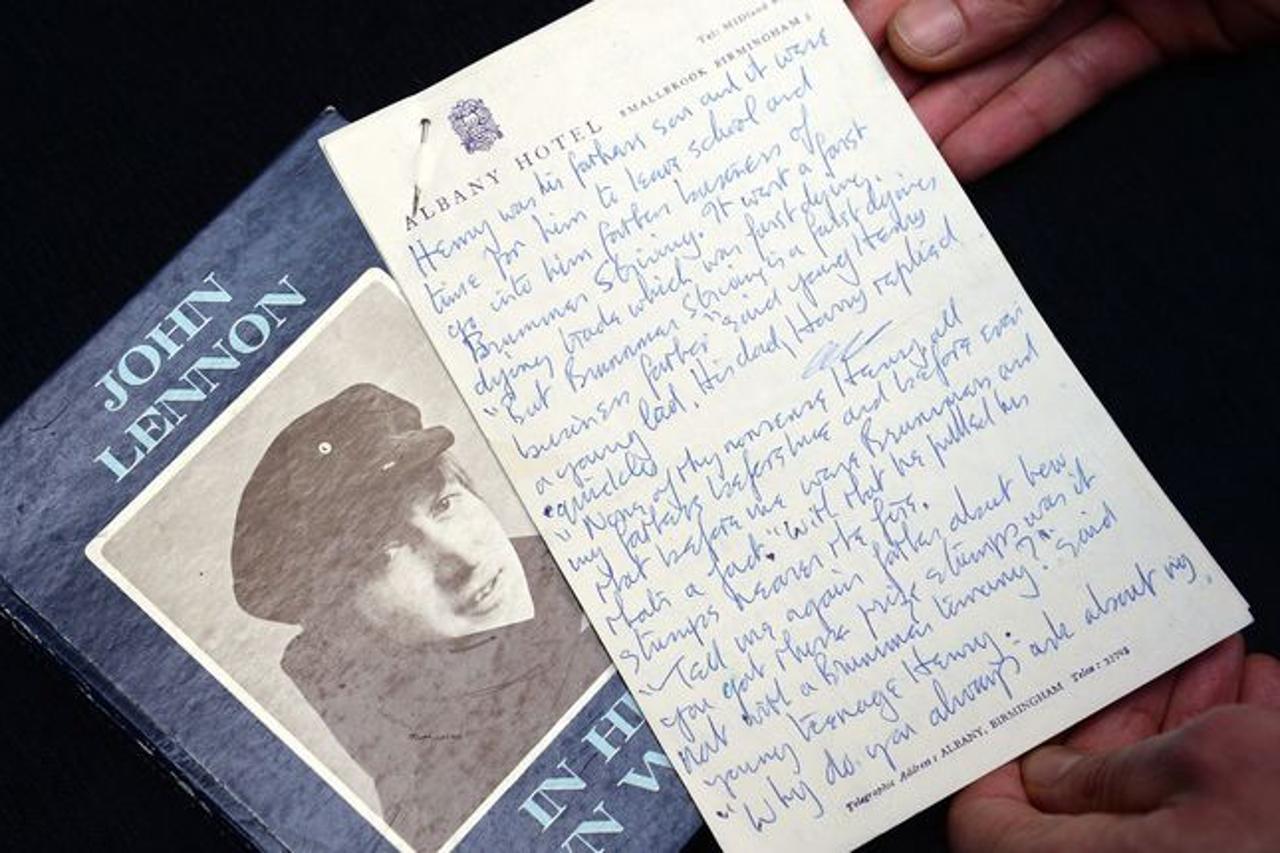 JOHN
LENNON
IN HI
N W
Tel: MIDland
SMALLBROOK BIRMINGHAM 5
ALBANY HOTEL
Henry was his fathers son and it were
time for him to leave school and
go into him father business of
Brummer Striving. It wert a farst
dying trade which was fast dying.
"But Brummer Striving is a farst dying
business farther" said young Henry
a young lad. His dad, Harry replied
quickled
"None of thy nonsense Henry all
my farthers before me and before even
that before me were Brummers and
thats a fact" With that he pulled his
stumps nearer the fire.
"Tell me again farther about how
you got those prize stumps was it
not with a Brummer Leruing?" said
young teenage Henry.
"Why do you always ask about my
Telegraphic Address: ALBANY, BIRMINGHAM Telex: